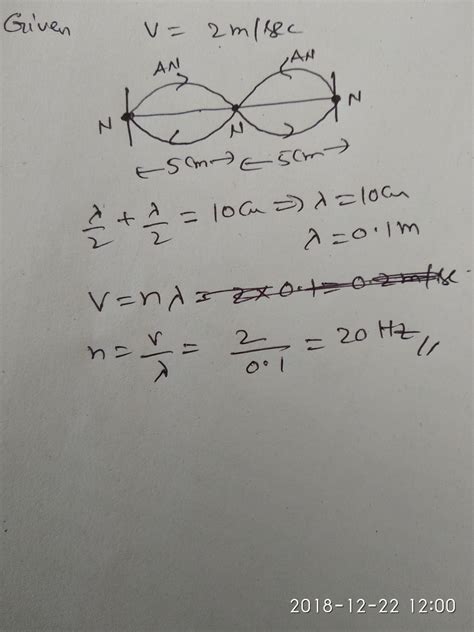 Given V = 2m/sec
AN AN
N N N
←5cm→ ←5cm→
λ/2 + λ/2 = 10cm ⇒ λ = 10cm
λ = 0.1m
V = nλ = 2×0.1 = 0.2m/sec
n = v/λ = 2/0.1 = 20 Hz //
2018-12-22 12:00